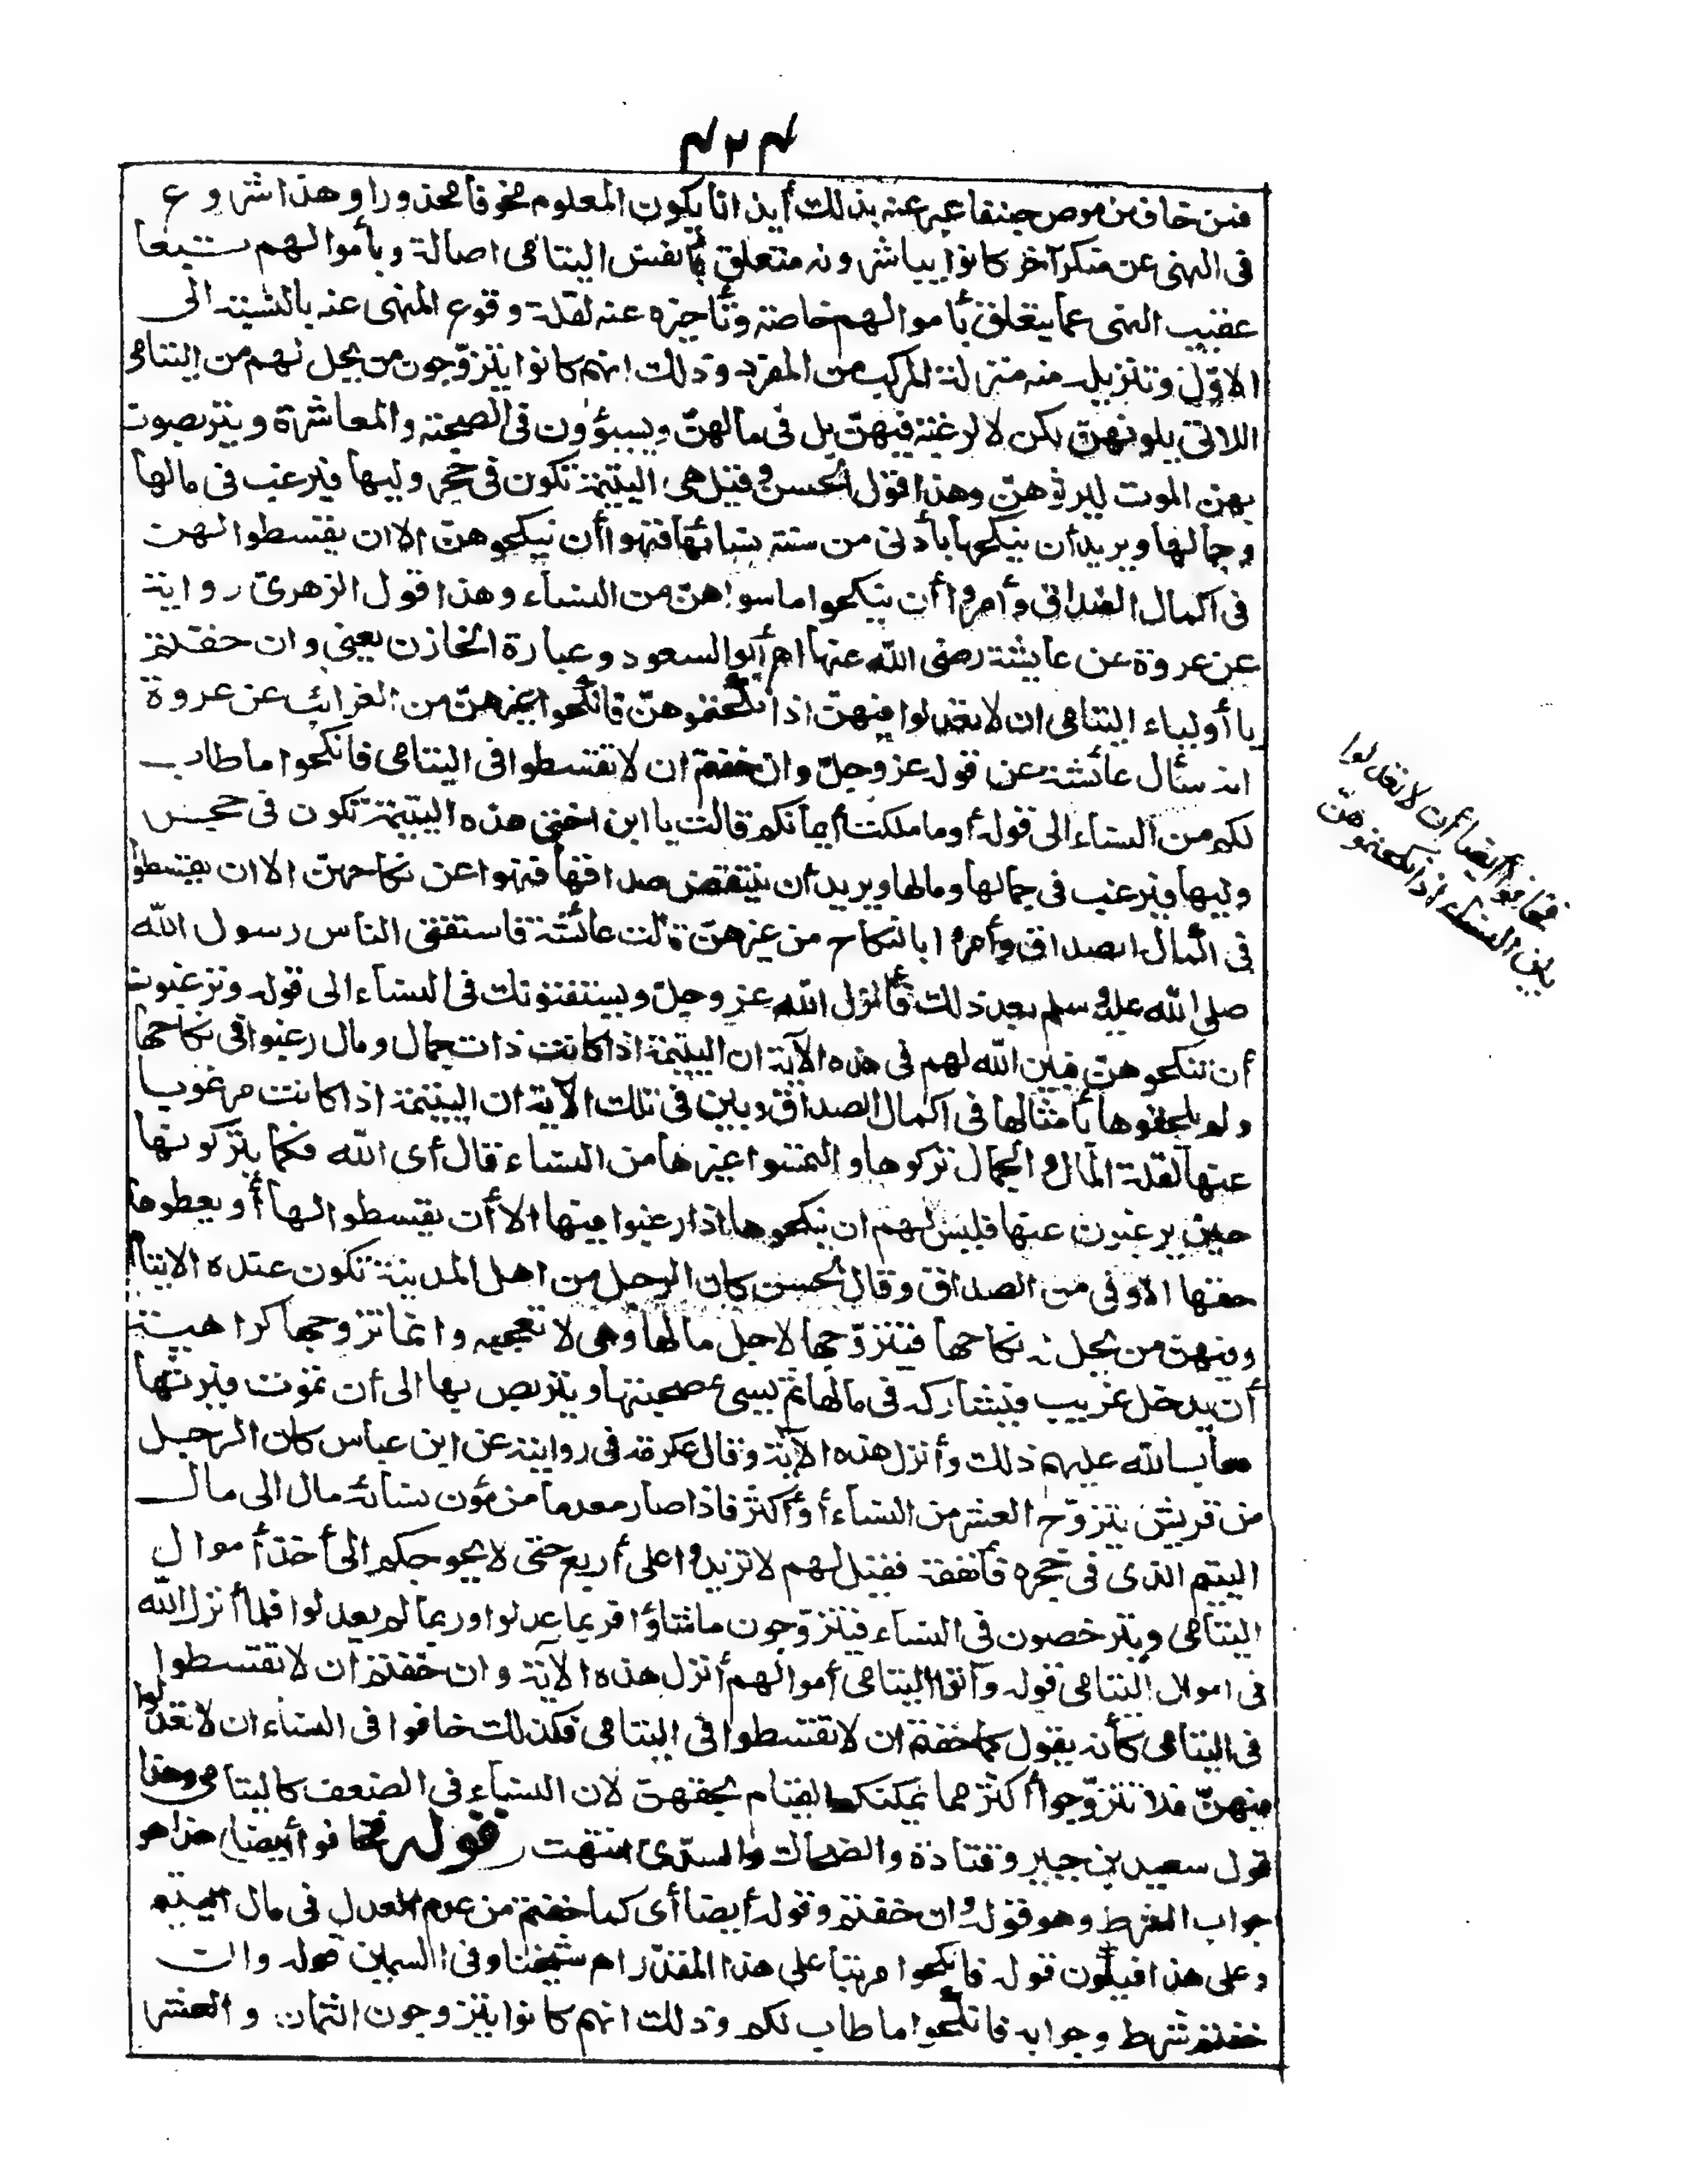 ٤٢٤
فمن خاف من موص جنفا عبر عنه بذلك أيذانا بكون المعلوم مخوفا محذورا وهذا شروع
فى النهى عن منكر آخر كانوا يباشرونه متعلق بأنفس اليتامى اصالة وبأموالهم تبعا
عقيب النهى عما يتعلق بأموالهم خاصة وتأخيره عنه لقلة وقوع المنهى عنه بالنسبة الى
الاول وتنزيله منه منزلة المركب من المفرد وذلك انهم كانوا يتزوجون من يحل لهم من اليتامى
اللاتى يلونهن لكن لا لرغبة فيهن بل فى مالهن ويسيؤون فى الصحبة والمعاشرة ويتربصون
بهن الموت ليرثوهن وهذا قول الحسن وقيل هى اليتيمة تكون فى حجر وليها فيرغب فى مالها
وجمالها ويريد أن ينكحها بأدنى من سنة نسائها فنهوا أن ينكحوهن الا ان يقسطوا لهن
فى اكمال الصداق وأمروا أن ينكحوا ما سواهن من النساء وهذا قول الزهرى رواية
عن عروة عن عايشة رضى الله عنها اهـ أبوالسعود وعبارة الخازن يعنى وان خفتم
يا أولياء اليتامى ان لا تعدلوا فيهن اذا نكحتموهن فانكحوا غيرهن من الغرائب عن عروة
انه سأل عائشة عن قوله عز وجل وان خفتم ان لا تقسطوا فى اليتامى فانكحوا ما طاب
لكم من النساء الى قوله أو ما ملكت أيمانكم قالت يا ابن اختى هذه اليتيمة تكون فى حجر
وليها فيرغب فى جمالها ومالها ويريد أن ينتقص صداقها فنهوا عن نكاحهن الا ان يقسطوا
فى اكمال الصداق وأمروا بالنكاح من غيرهن قالت عائشة فاستفتى الناس رسول الله
صلى الله عليه وسلم بعد ذلك فأنزل الله عز وجل ويستفتونك فى النساء الى قوله وترغبون
أن تنكحوهن فبين الله لهم فى هذه الآية ان اليتيمة اذا كانت ذات جمال ومال رغبوا فى نكاحها
ولم يلحقوها بأمثالها فى اكمال الصداق وبين فى تلك الآية ان اليتيمة اذا كانت مرغوبا
عنها لقلة المال والجمال تركوها والتمسوا غيرها من النساء قال أى الله فكما يتركونها
حين يرغبون عنها فليس لهم ان ينكحوها اذا رغبوا فيها الا أن يقسطوا لها أو يعطوها
حقها الاوفى من الصداق وقال الحسن كان الرجل من اهل المدينة تكون عنده الايتام
وفيهن من يحل له نكاحها فيتزوجها لاجل مالها وهى لا تعجبه وانما تزوجها كراهية
أن يدخل غريب فيشاركه فى مالها ثم يسىء صحبتها ويتربص بها الى أن تموت فيرثها
فعاب الله عليهم ذلك وأنزل هذه الآية وقال عكرمة فى روايته عن ابن عباس كان الرجل
من قريش يتزوج العشر من النساء أو أكثر فاذا صار معدما من مؤن نسائه مال الى مال
اليتيم الذى فى حجره فأنفقه فقيل لهم لا تزيدوا على أربع حتى لا يحوجكم الى أخذ أموال
اليتامى ويترخصون فى النساء فيتزوجون ما شاؤا فربما عدلوا وربما لم يعدلوا فلما أنزل الله
فى اموال اليتامى قوله وآتوا اليتامى أموالهم أنزل هذه الآية وان خفتم ان لا تقسطوا
فى اليتامى كأنه يقول كما خفتم ان لا تقسطوا فى اليتامى فكذلك خافوا فى النساء ان لا تعدلوا
فيهن فلا تتزوجوا أكثر مما يمكنكم القيام بحقهن لان النساء فى الضعف كاليتامى وهذا
قول سعيد بن جبير وقتادة والضحاك والسدى انتهت قوله فخافوا أيضا) هذا هو
جواب الشرط وهو قوله وان خفتم وقوله أيضا أى كما خفتم من عدم العدل فى مال اليتيم
وعلى هذا فيكون قوله فانكحوا مرتبا على هذا المقدر اهـ شيخنا وفى السمين قوله وان
خفتم شرط وجوابه فانكحوا ما طاب لكم وذلك انهم كانوا يتزوجون الثمان والعشر
فخافوا أيضا أن لا تعدلوا
بين النساء اذا نكحتموهن